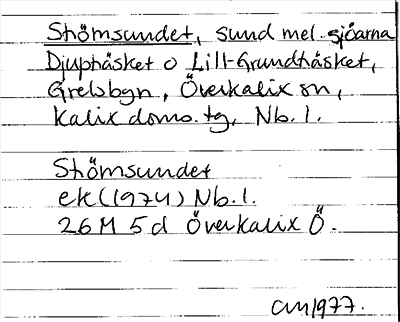 Stömsundet, sund mel. sjöarna
Djupträsket o Lill-Grundträsket,
Grelsbyn, Överkalix sn,
Kalix doms. tg, Nb. l.
Stömsundet
ek (1974) Nb. l.
26M 5d Överkalix Ö.
1977.